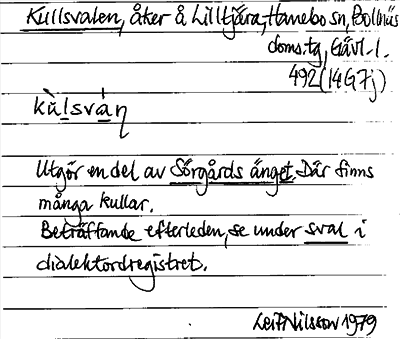 Kullsvalen, åker å Lilltjära, Hanebo sn, Bollnäs
doms.tg, Gävl. l.
492 (14G7j)
kùlsván
Utgör en del av Sörgårds änget. Där finns
många kullar.
Beträffande efterleden, se under sval i
dialektordregistret.
Leif Nilsson 1979